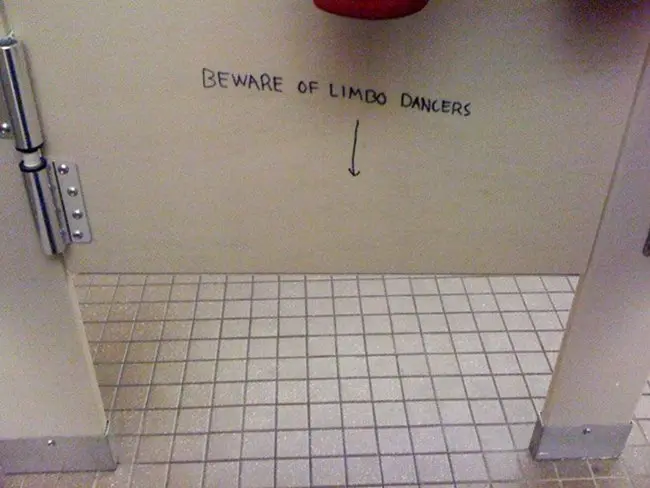 BEWARE OF LIMBO DANCERS